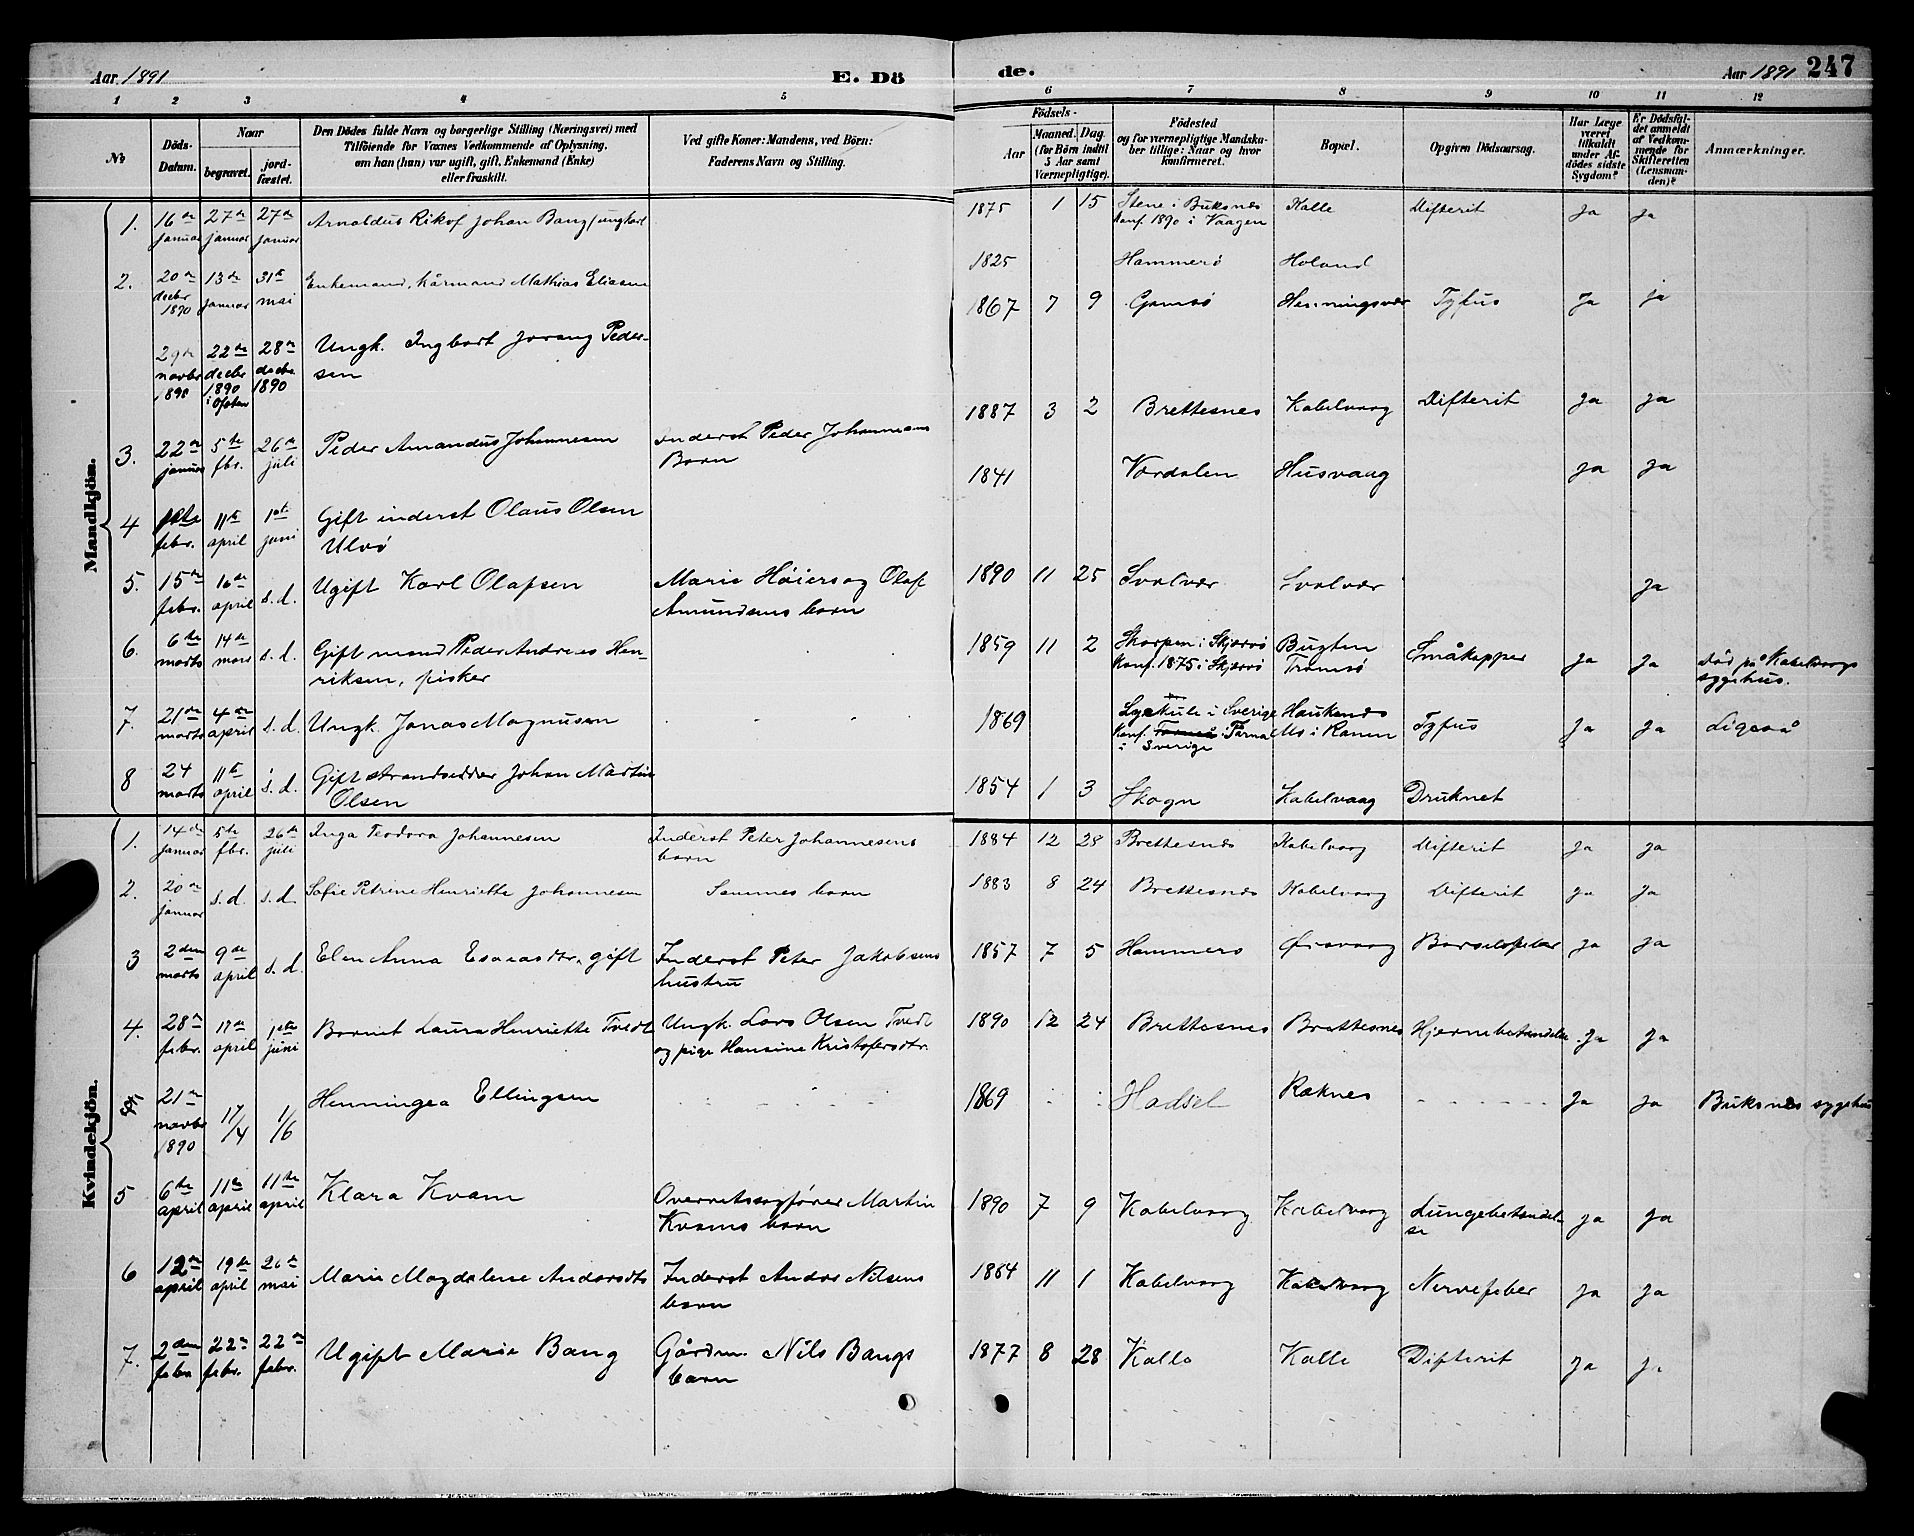 Aar 1891 E. Dö
de. Aar 1891 247
1 2 3 4 5
6 7 8 9 10 11 12
No
Döds-
Datum.
Naar
begravet.
jord-
fæstet.
Den Dödes fulde Navn og borgerlige Stilling (Næringsvei) med
Tilföiende for Voxnes Vedkommende af Oplysning,
om han (hun) var ugift, gift, Enkemand (Enke)
eller fraskilt.
Ved gifte Koner: Mandens, ved Börn:
Faderens Navn og Stilling.
Födsels-
Aar
Maaned. Dag.
(for Börn indtil
5 Aar samt
Værnepligtige).
Födested
og for værnepligtige Mandska-
ber tillige: Naar og hvor
konfirmeret.
Bopæl.
Opgiven Dödsaarsag.
Har Læge
været
tilkaldt
under Af-
dödes sidste
Sygdom?
Er Dödsfal-
det anmeldt
af Vedkom-
mende for
Skifteretten
(Lensman-
den)?
Anmærkninger.
Mandkjön.
1. 16de januar 27de januar 27de januar Arnoldus Rikof Johan Bang, ungkarl 1875 1 15 Stene i Buksnes Kalle Difterit Ja ja
Konf. 1890 i Vaagen
2. 20de decbr 1890 13de januar 31te mai Enkemand, kårmand Mathias Eliasen 1825 Hammerø Holand
29de novbr 1890 22de decbr 1890 i Ofoten 28de decbr 1890 Ungk. Ingbart Jorang Peder-
sen 1867 7 9 Gamsø Henningsvær Tyfus Ja ja
3. 22de januar 5te fbr. 26de juli Peder Amandus Johannesen Inderst Peder Johannesens
Barn 1887 3 2 Brettesnes Kabelvaag Difterit Ja Ja
4 febr. 11te april 1ste juni Gift inderst Olaus Olsen
Ulvö 1841 Værdalen Husvaag Ja Ja
5. 15de febr. 16de april s. d. Ugift Karl Olafsen Marie Høiers og Olaf
Amundsens barn 1890 11 25 Svolvær Svolvær Ja
6. 6te marts 14de mars s. d. Gift mand Peder Andreas Hen-
riksen, fisker 1859 11 2 Skorpen i Skjærvö Bugten Småkopper Ja Ja död på Kabelvaags
Konf. 1875 i Skjærvö Tromsö sygehus.
7. 21de marts 4de april s. d. Ungk. Jonas Magnusen 1869 i Sverige Haukenes Tyfus Ja Ja Ligeså
Konf. Tärna Mo i Ranen
i Sverige
8 24 marts 11te april s. d. Gift strandsidder Johan Martin
Olsen 1854 1 3 Skogn Kabelvaag Druknet
Kvindekjön.
1. 14de januar 5te fbr. 26de juli Inga Teodora Johannesen Inderst Peter Johannesens
barn 1884 12 28 Brettesnes Kabelvaag Difterit Ja Ja
2. 20de januar s. d. s. d. Sofie Petrine Henriette Johannesen Sammes barn 1883 8 24 Brettesnes Kabelvaag Difterit Ja Ja
3 2den marts 9de april s. d. Elen Anna Esaiasdtr. gift Inderst Peter Jakobsens
hustru 1857 7 5 Hammerö Örsvaag Barselsfeber Ja Ja
4. 28de febr. 17de april 1ste juni Barnet Laura Henriette Tvedt Ungk. Lars Olsen Tvedt
og pige Hansine Kristofersdtr. 1890 12 24 Brettesnes Brettesnes Hjernebetændelse Ja Ja
21de novbr 1890 17/4 1/6 Henningea Ellingsen 1869 Hadsel Raknes Ja Ja Buksnes sygehus
5 6te april 11te april 11te april Klara Kvam Overretssagförer Martin
Kvams barn 1890 7 9 Kabelvaag Kabelvaag Lungebetændel-
se Ja Ja
6 12te april 19de april 26de mai Marie Magdalene Andersdtr Inderst Andor Nilsens
barn 1864 11 1 Kabelvaag Kabelvaag Nervefeber Ja Ja
7. 2den febr 22de febr. 22de febr. Ugift Marie Bang Gårdm. Nils Bangs
barn 1877 8 28 Kalle Kalle Difterit Ja Ja